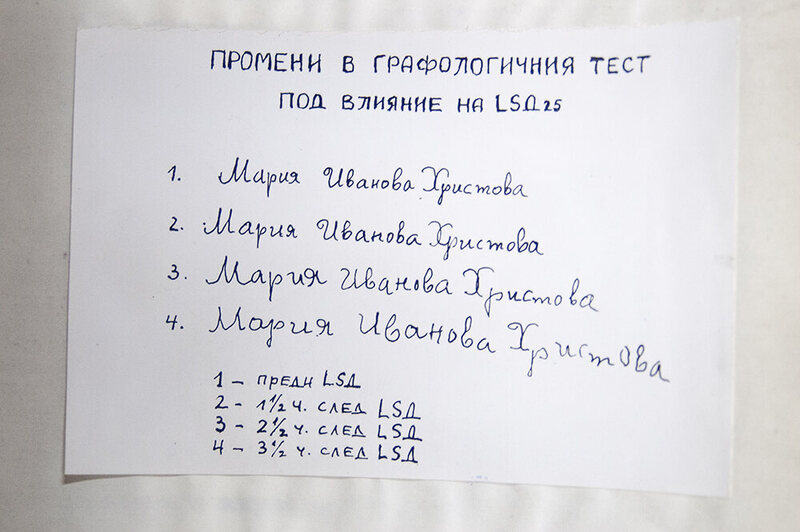 ПРОМЕНИ В ГРАФОЛОГИЧНИЯ ТЕСТ
ПОД ВЛИЯНИЕ НА LSД25
1. Мария Иванова Христова
2. Мария Иванова Христова
3. Мария Иванова Христова
4. Мария Иванова Христова
1 – ПРЕДИ LSД
2 – 1 1/2 ч. СЛЕД LSД
3 – 2 1/2 ч. СЛЕД LSД
4 – 3 1/2 ч. СЛЕД LSД